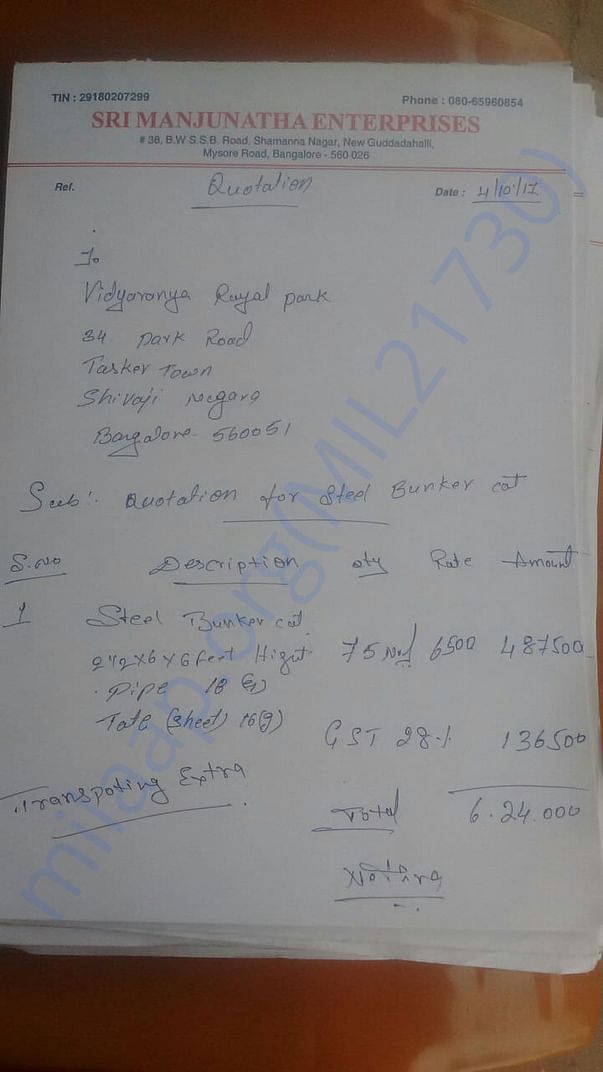 TIN : 29180207299
Phone : 080-65960854
SRI MANJUNATHA ENTERPRISES
# 38, B.W.S.S.B. Road, Shamanna Nagar, New Guddadahalli,
Mysore Road, Bangalore - 560 026
Ref.
Quotation
Date : 4/10/17
To
Vidyaranya Royal park
34 park Road
Tasker Town
Shivaji Nagara
Bangalore- 560051
Sub:. Quotation for Steel Bunker cot
S.No Description qty Rate Amount
1 Steel Bunker cot
2½x6x6 feet Hight 75 Nos 6500 487500
Pipe 18 (g)
Tate (sheet) 16(g)
GST 28% 136500
Transpoting Extra
Total 6.24.000
milaap.org(MIL21730)